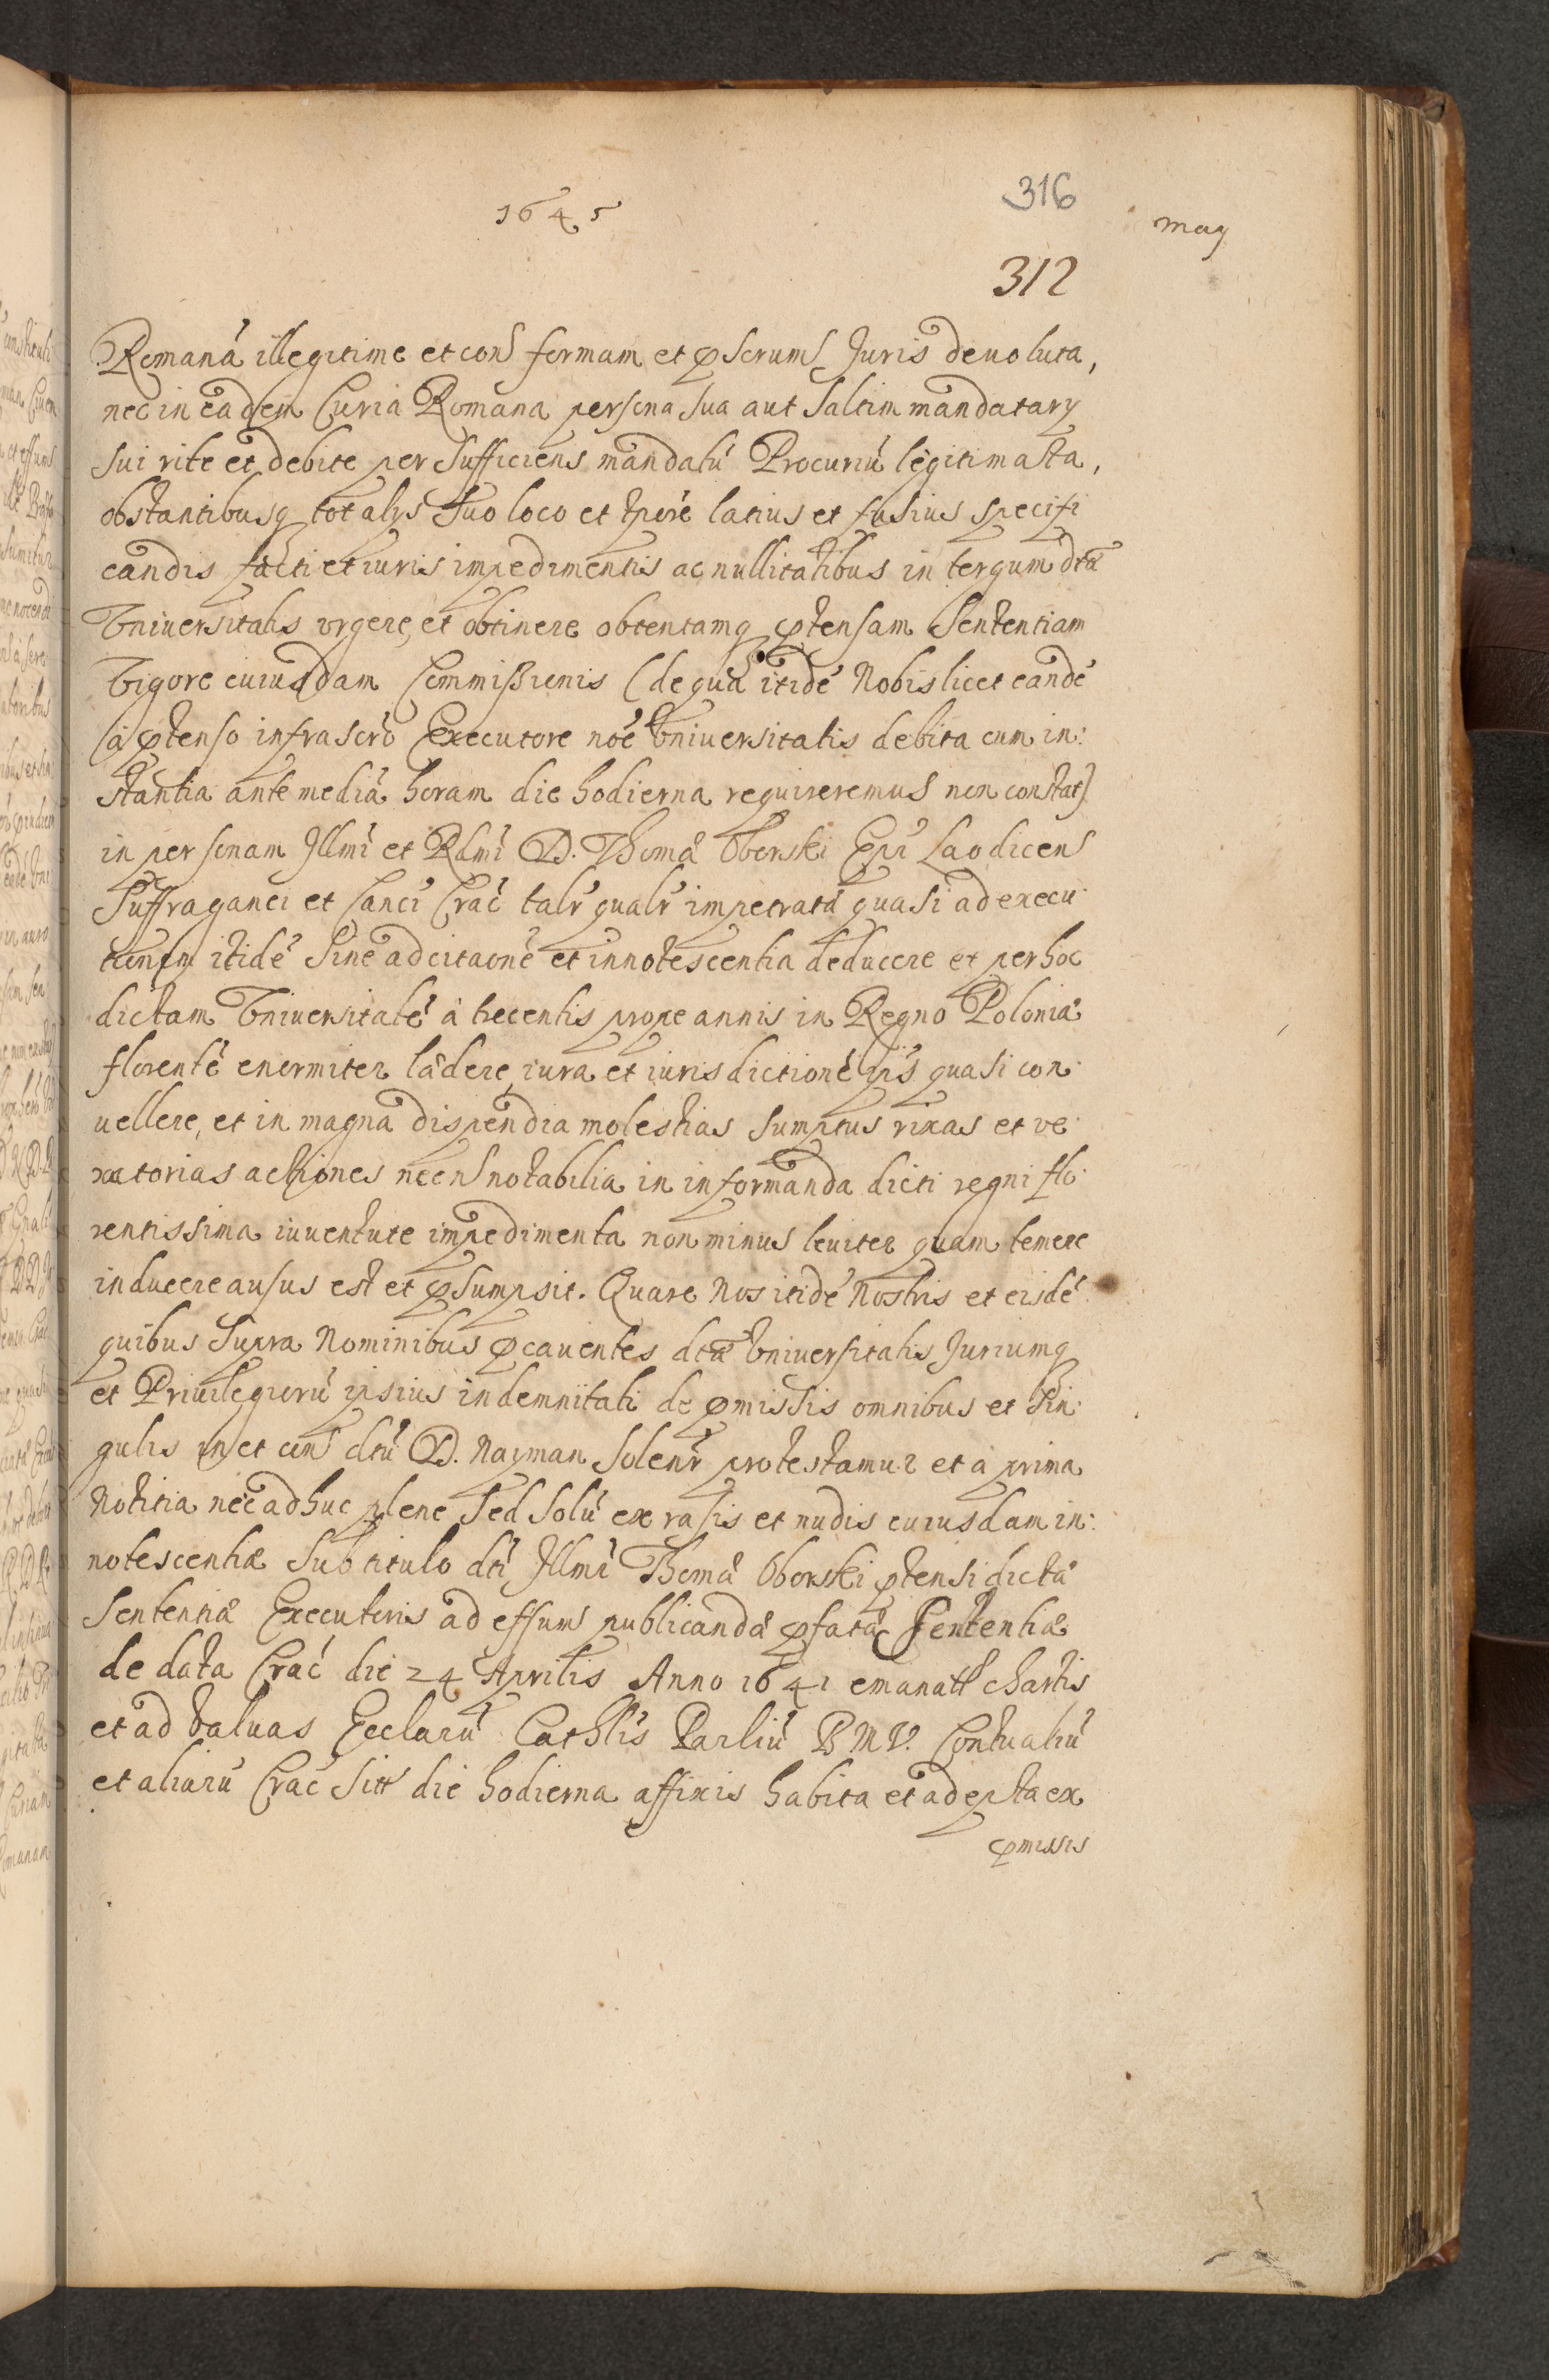 316
1645
May
312
Romanã illegitime et cont̃ formam et p̃scrumt̃ Juris deuoluta,
nec in eadem Curia Romana persona sua aut saltim mandatarÿ
sui rite et debite per sufficiens mandatũ Procuriũ legitimata,
obstantibusq tot alÿs suo loco et tp̃ore latius et fusius specifi
candis facti et iuris impedimentis ac nullitatibus in tergum dtæ
Vniuersitatis vrgere, et obtinere obtentamq p̃tensam Sententiam
Vigore cuiusdam Commißionis (de qua itidẽ Nobis licet eandẽ
a p̃tenso infrascrõ Executore noẽ Vniuersitatis debita cum in:
stantia ante mediã horam die hodierna requireremus non constat)
in personam Jllmi et Rdmi D. Thomæ Oborski Epi Laodicen
Suffraganei et Canci Crac̃ talr̃ qualr̃ impetratã quasi ad execu:
tionem itidẽ sine adcitaonẽ et innotescentia deducere et per hoc
dictam Vniuersitatẽ à trecentis prope annis in Regno Poloniæ
florentẽ enormiter lædere, iura et iurisdictionẽ ip̃s quasi con:
uellere, et in magna dispendia molestias sumptus rixas et ve:
xatorias actiones necn̄ notabilia in informanda dicti regni flo:
rentissima iuuentute impedimenta non minus leuiter quam temere
inducere ausus est et p̃sumpsit. Quare Nos itidẽ Nostris et eisdẽ
quibus supra Nominibus p̃cauentes dtæ Vniuersitatis Juriumq
et Priuilegiorũ ipsius indemnitati de p̃missis omnibus et sin:
gulis in et cont̃ dtũ D. Nayman solenr̃ protestamur et a prima
Notitia nec adhuc plene sed solũ ex rasis et nudis cuiusdam in:
notescentiæ sub titulo dti Jllmi Thomæ Oborski p̃tensi dictæ
Sententiæ Executoris ad effum publicandæ p̃fatæ Sententiæ
de data Crac̃ die 24 Aprilis Anno 1641 emanatt chartis
et ad valuas Ecclarũ Cathlis Parliũ B M V. Contualiũ
et aliarũ Crac̃ sitt die hodierna affixis habita et adepta ex
p̃missis